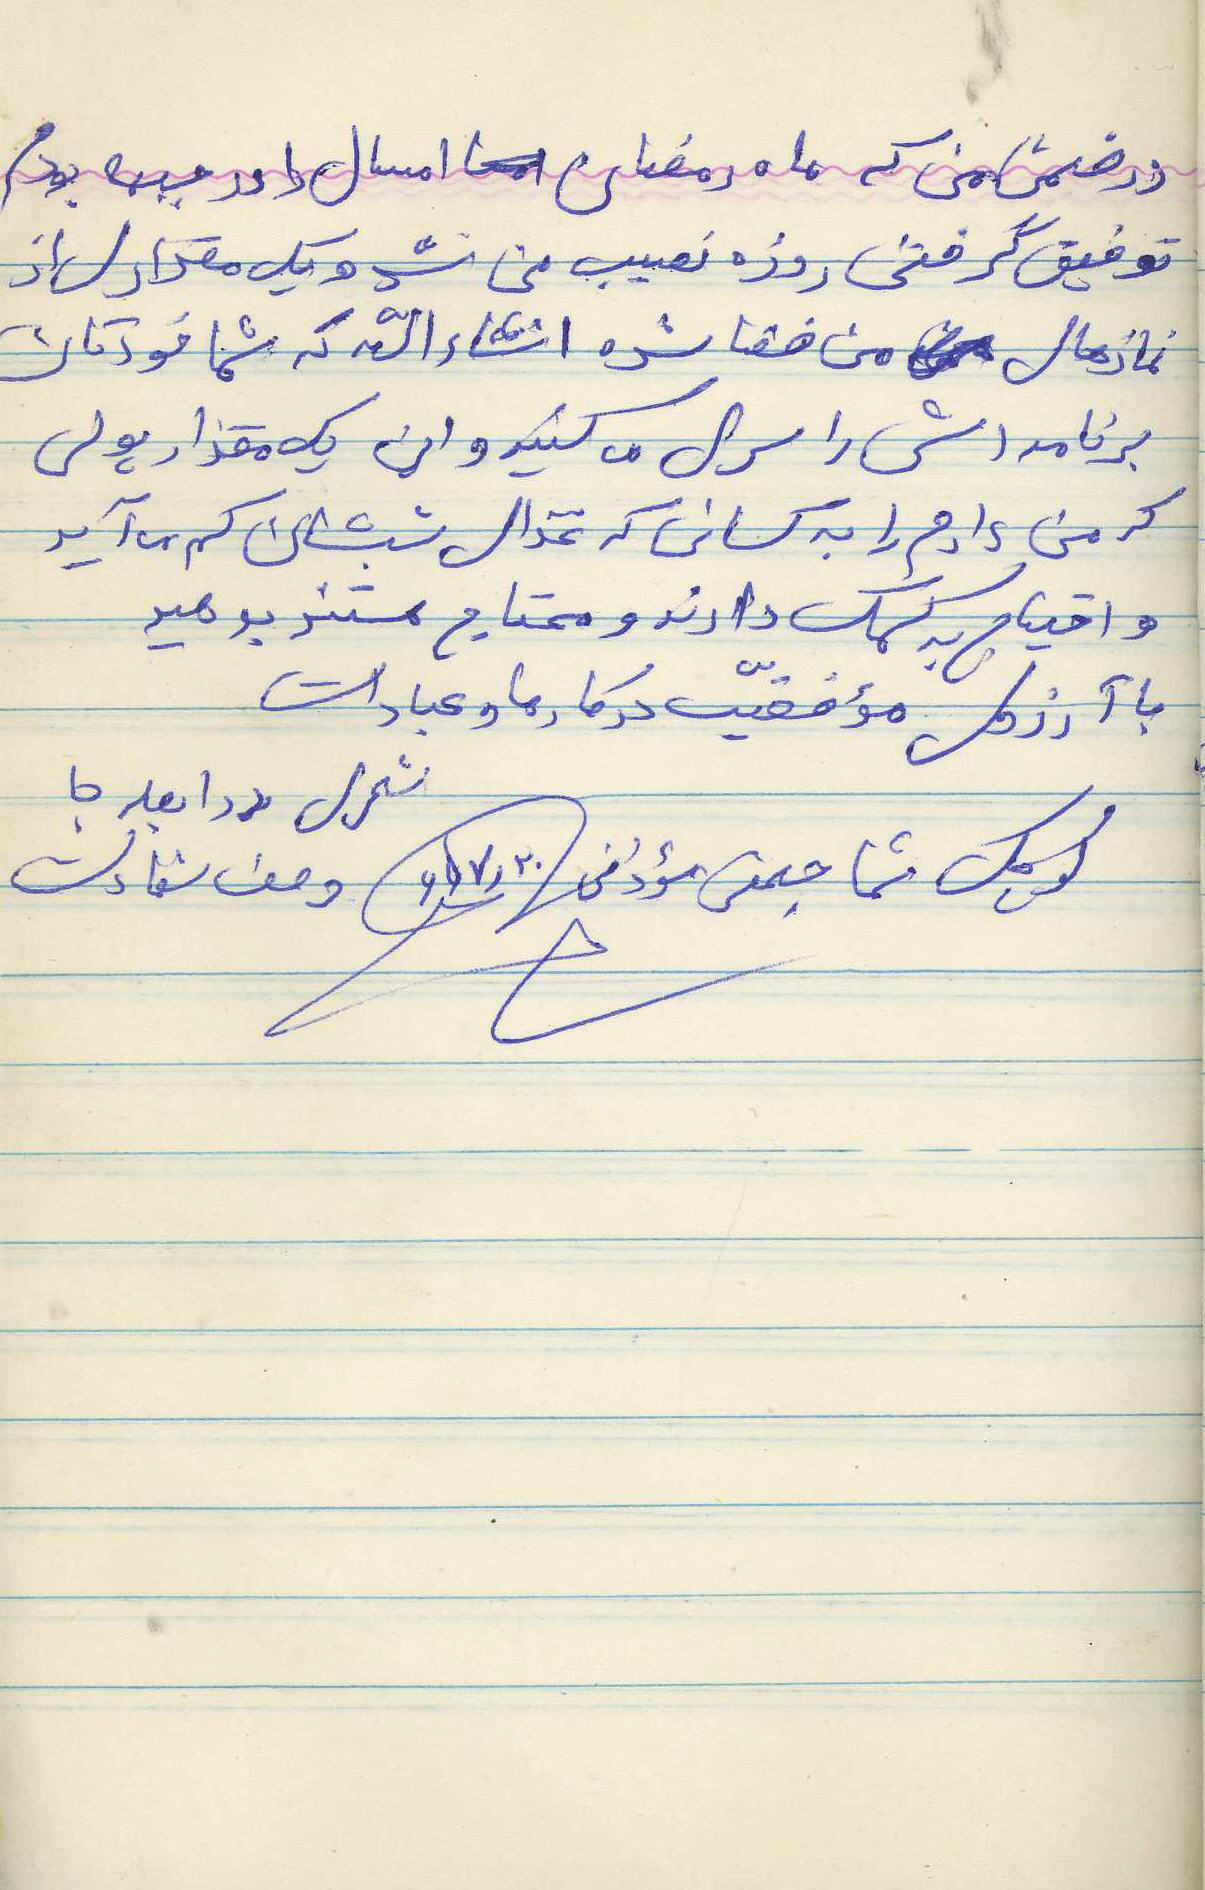 در ضمن من که ماه رمضان امسال را در جبهه بودم
توفیق گرفتن روزه نصیب من نشد و یک مقداری از
نمازهای من قضا شده انشاءالله که شما خودتان
برنامه اش را سری می کنید و این یک مقدار پولی
که من دارم را به کسانی که غذای شبشان کم می آید
و احتیاج به کمک دارند و محتاج هستند بدهید
با آرزوی مؤفقیّت در کارها و عبادات
کوچک شما مؤذنی ۶۱/۷/۳۰